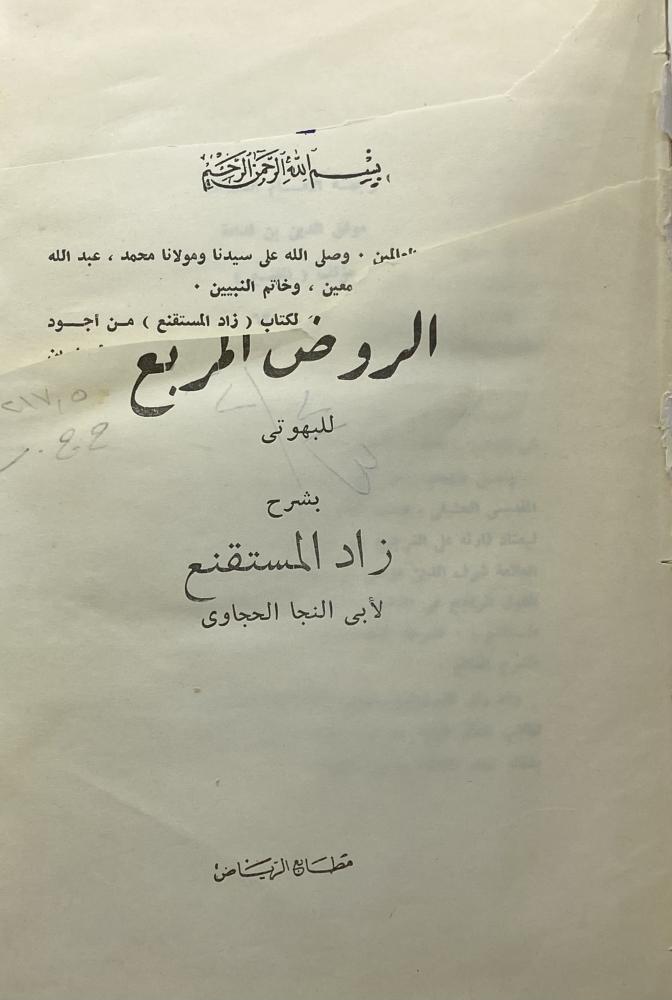 بِسْمِ اللهِ الرَّحْمنِ الرَّحِيْمِ
العالمين · وصلى الله على سيدنا ومولانا محمد ، عبد الله
معين ، وخاتم النبيين ·
لكتاب ( زاد المستقنع ) من أجود
الروض المربع
٢١٧,٥
للبهوتى
بشرح
زاد المستقنع
لأبى النجا الحجاوى
مطابع الرياض